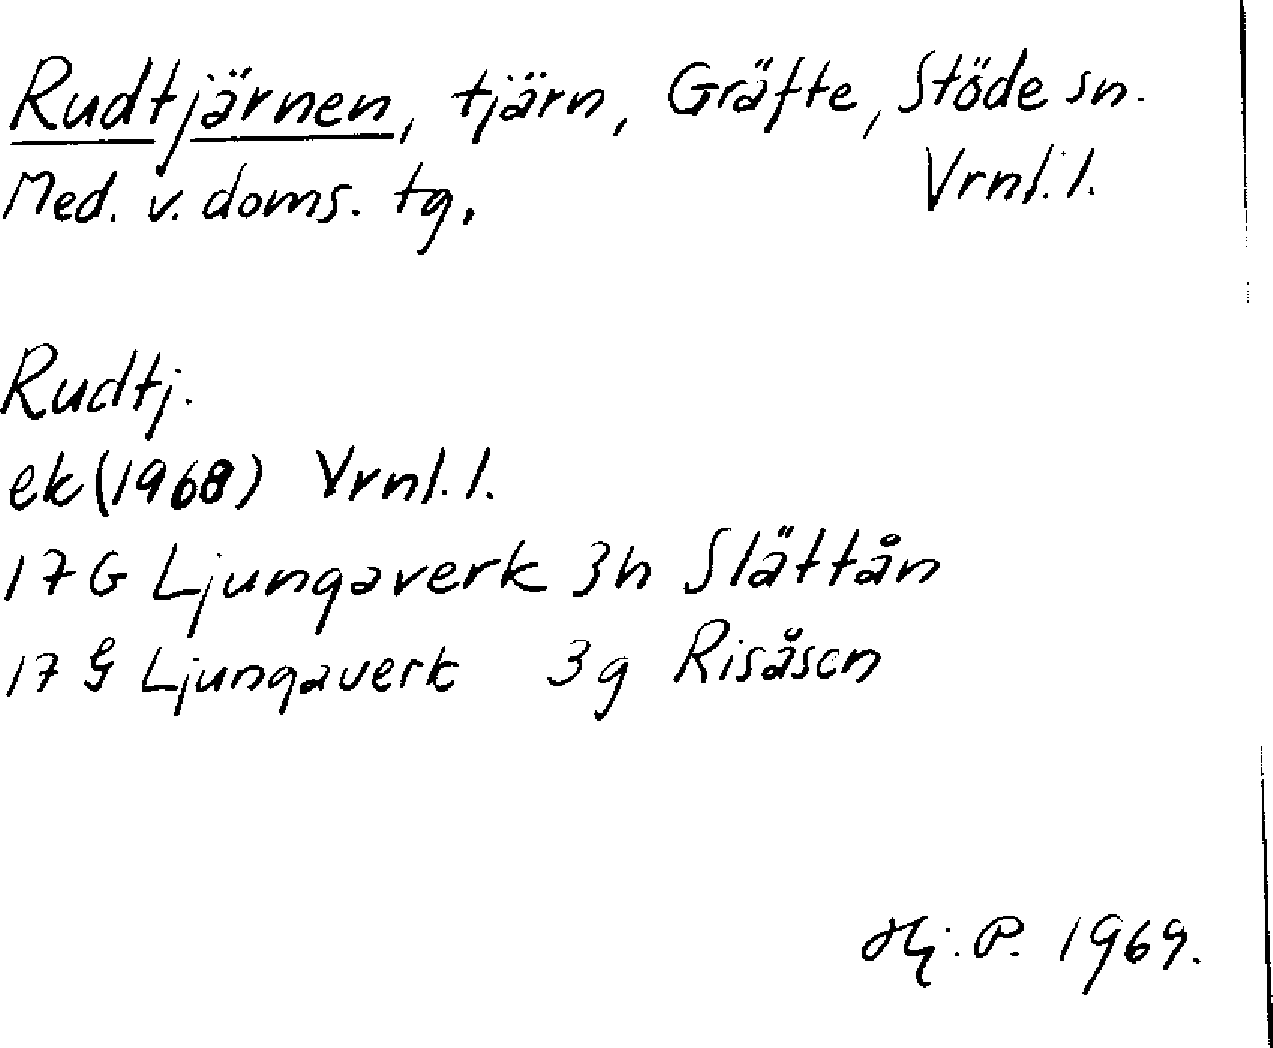 Rudtjärnen, tjärn, Gräfte, Stöde sn.
Med. v. doms. tg. Vrnl. l.
Rudtj.
ek (1968) Vrnl. l.
17 G Ljungaverk 3h Slättån
17 G Ljungaverk 3g Risåsen
Hj. P. 1969.